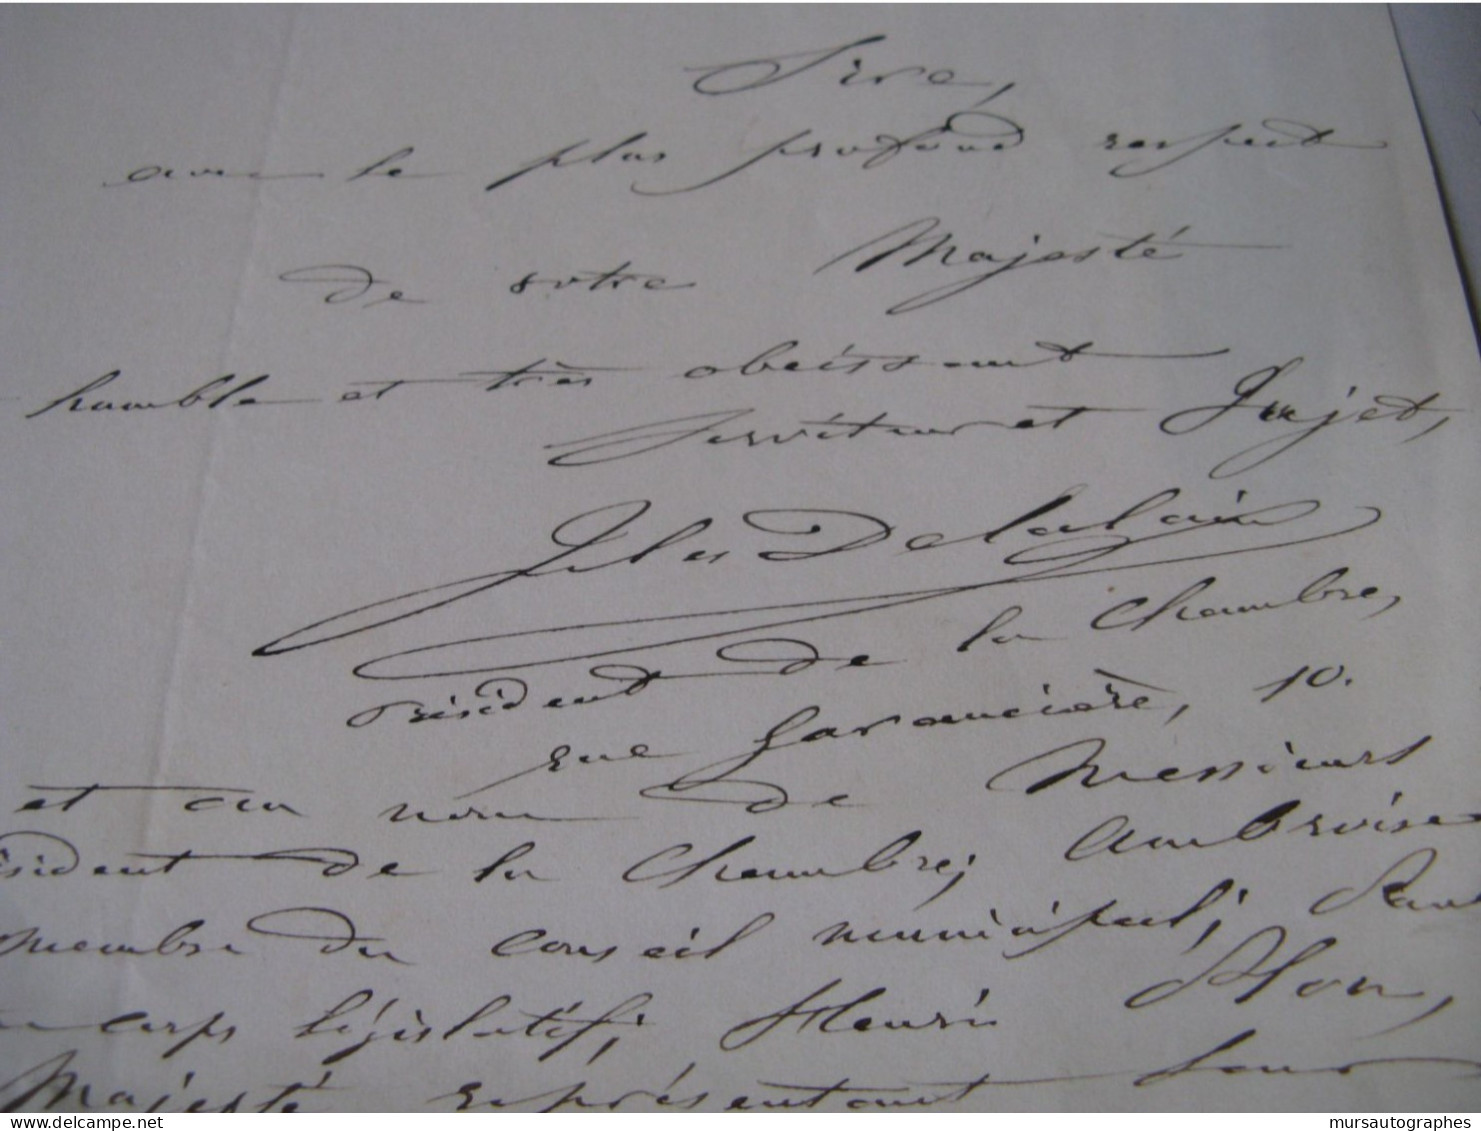 Sire,
avec le plus profond respect
de votre Majesté
humble et très obéissant
serviteur et Sujet,
Jules Delalain
Président de la Chambre,
rue Garancière, 10.
et au nom de Messieurs
ésident de la Chambre; Ambroise
membre du conseil municipal; Paul
corps législatif; Henri Plon,
Majesté représentant leur
delcampe.net
mursautographes